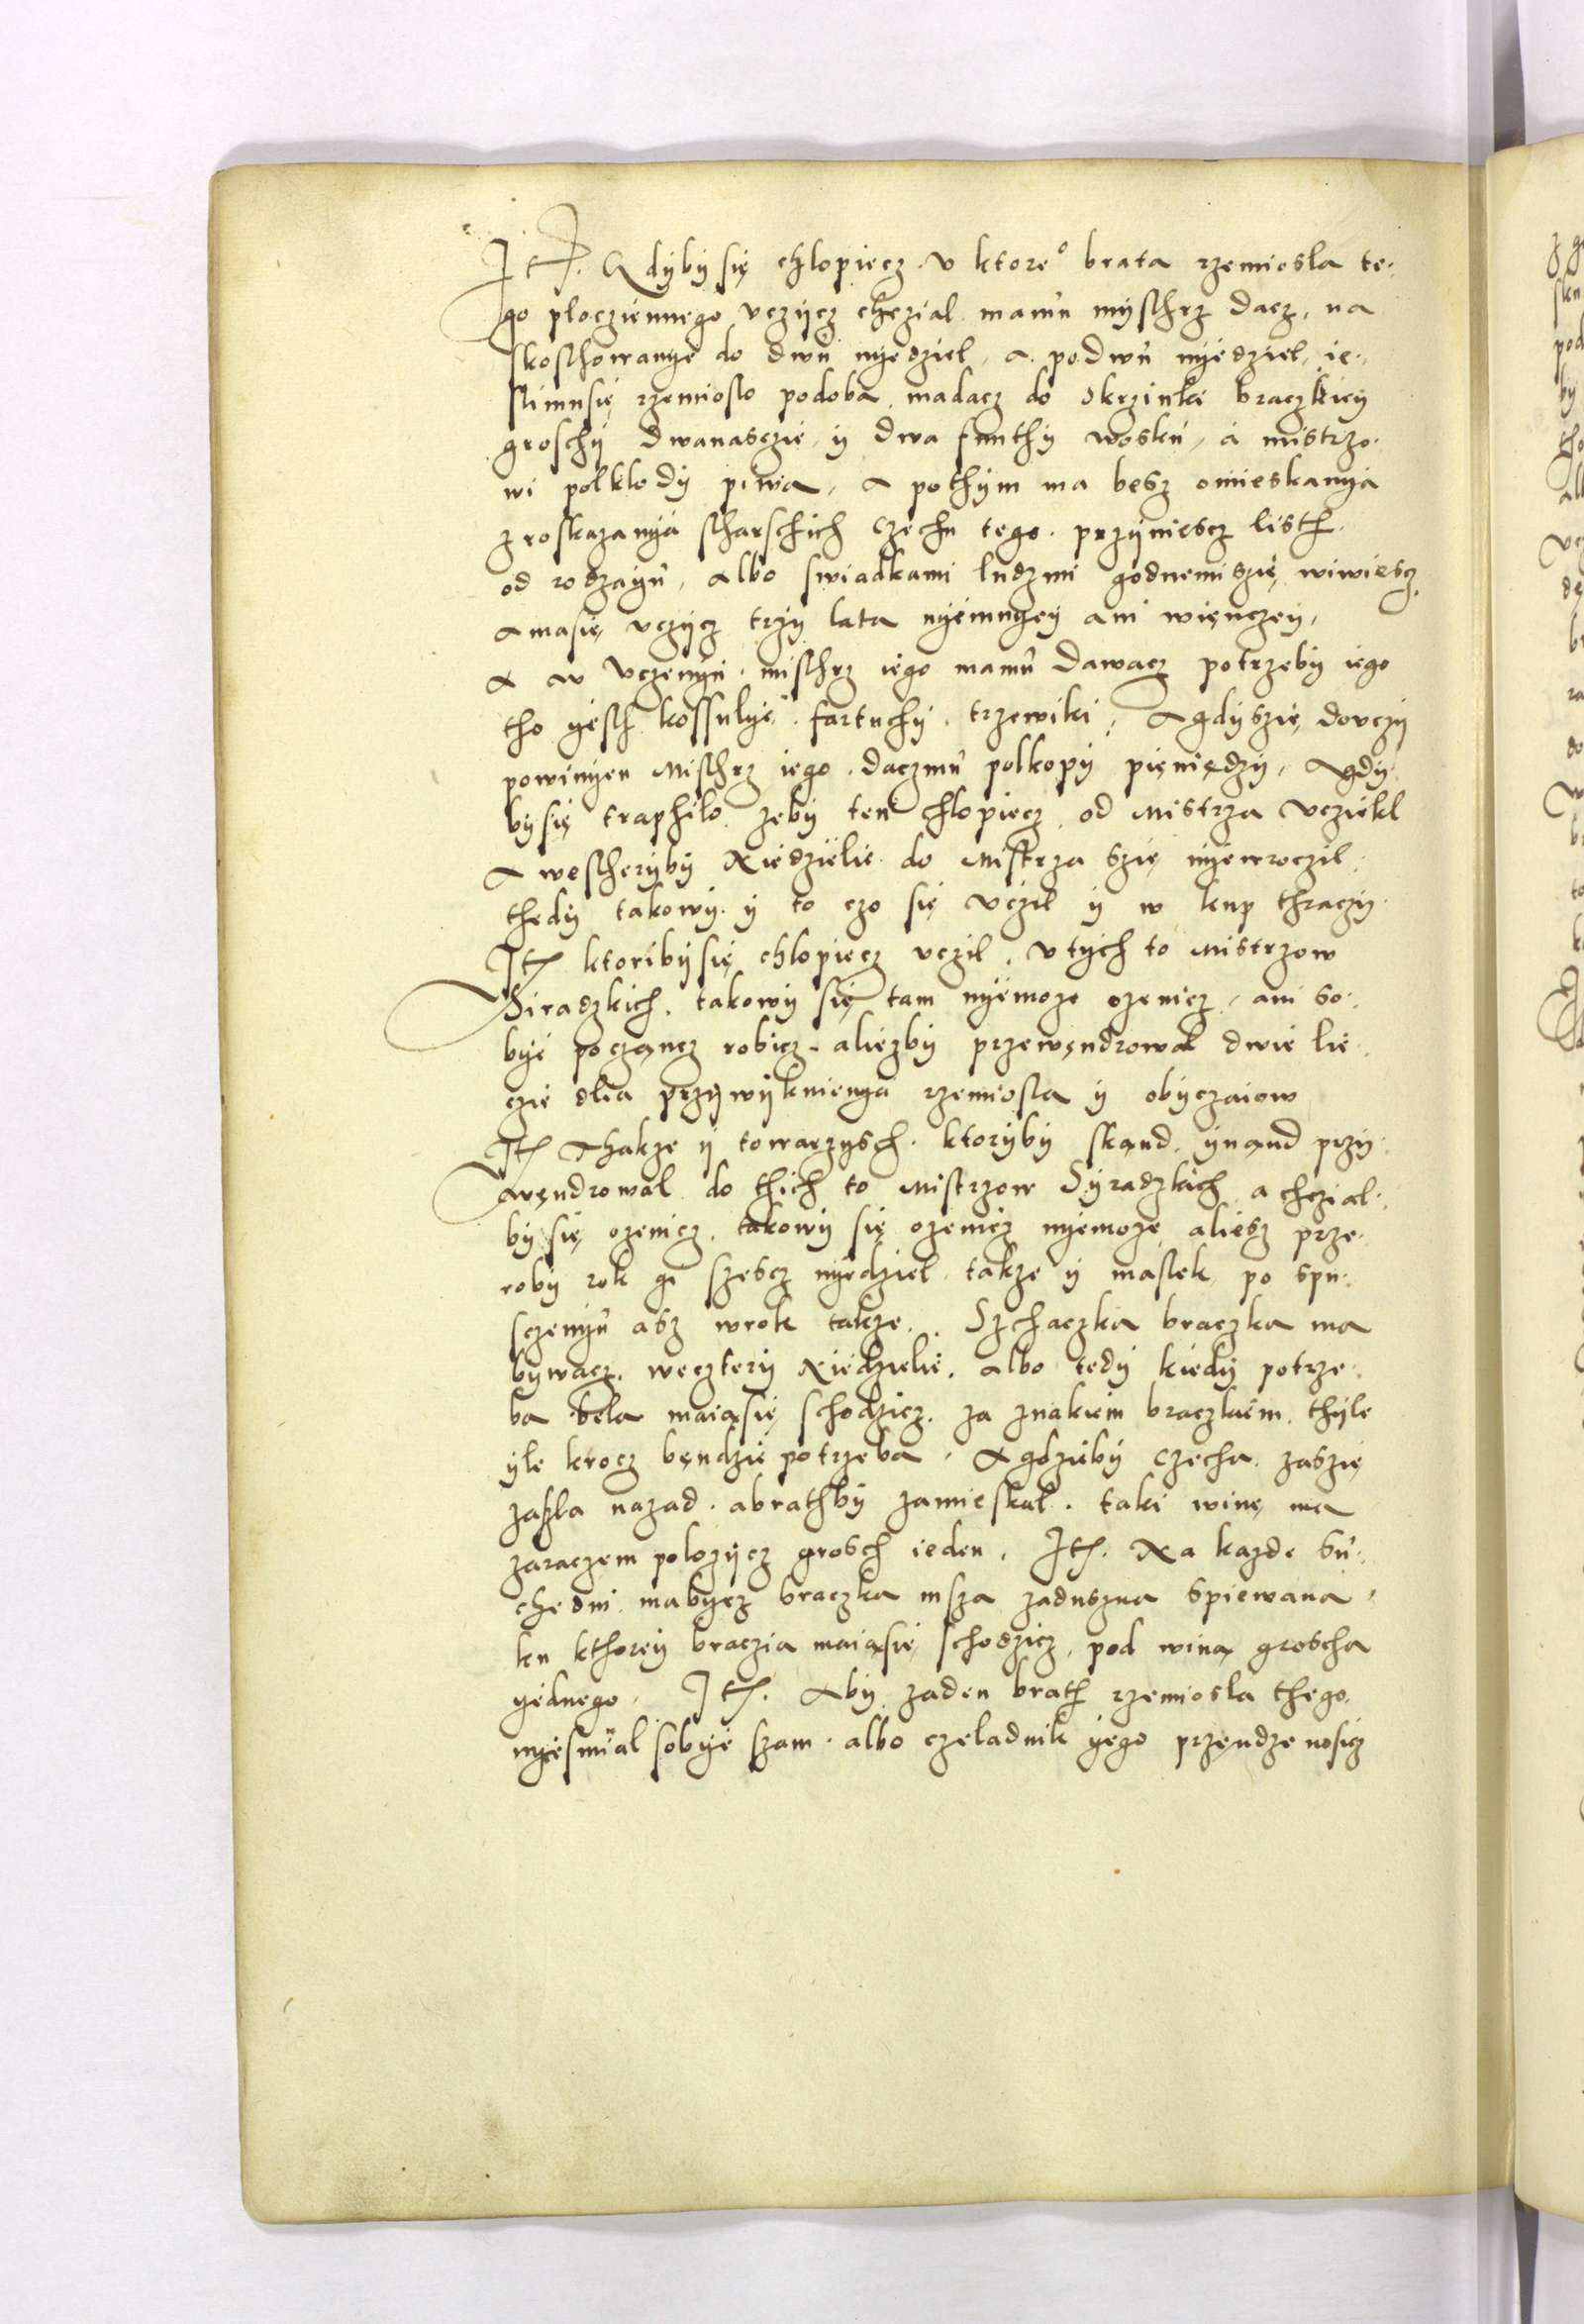 Jtem. Gdÿbÿ się chlopiecz v ktore° brata rzemiosla te-
go płocziennego vczÿcz chczial mamu mÿsthrz dacz, na
skosthowanÿe do dwu nÿedziel, A po dwu nÿedziel, ie-
slimusię rzemioslo podoba, madacz do skrzinki braczkieÿ
groschÿ dwanasczie, ÿ dwa funthÿ wosku, a mistrzo-
wi polklodÿ piwa, A pothÿm ma besz omieskanÿa
z roskazanÿa stharschich czechu tego. przÿniescz listh
od rodzaÿu, albo swiadkami ludzmi godnemiszię wiwiescz,
A masię vczÿcz trzÿ lata nÿemnÿeÿ ani więnczeÿ,
A w vczenÿu. misthrz iego mamu dawacz potrzebÿ iego
tho ÿesth kossulÿe. fartuchÿ. trzewiki, Agdÿszię dovczÿ
powinÿen Misthrz iego. daczmu polkopÿ pięniędzÿ, Agdÿ
bÿsię traphilo zebÿ ten chlopiecz od Mistrza vcziekl
A wescherÿbÿ Niedzielie do Mistrza szię nÿewroczil,
thedÿ takowÿ. ÿ to czo się vczil ÿ w kup thraczÿ.
Jtem ktoribÿsię chlopiecz vczil, v tÿch to Mistrzow
Siradzkich, takowÿ się tam nÿemoze ozenicz, ani so-
bÿe poczęncz robicz, aliezbÿ przewęndrowal dwie lie-
czie dlia przÿwÿknienÿa rzemiosla ÿ obÿczaiow
Jtem Thakze ÿ towarzÿsch. ktorÿbÿ skąnd ÿnąnd przÿ-
węndrowal do thich to Mistrzow Sÿradzkich a chczial-
bÿ się ozenicz, takowÿ się ozenicz nÿemoze aliesz prze-
robÿ rok ÿ szescz nÿedziel takze ÿ maslek, po spu-
sczenÿu asz wrok takze. Szchaczka braczka ma
bÿwacz, weczterÿ Niedzielie. albo tedÿ kiedÿ potrze-
ba bela maiąsię schodzicz, za znakiem braczkiem, thÿle
ÿle krocz bęndzie potrzeba, A gdziebÿ czecha zaszię
zaszla nazad. abrathbÿ zamieskal. taki winę ma
zaraczem polozÿcz grosch ieden, Jtem. Na kazde su-
chedni mabÿcz braczka msza zaduszna spiewana,
ku kthoreÿ braczia maiąsię schodzicz, pod winą groscha
ÿednego, Jtem. Abÿ zaden brath rzemiosla thego,
nÿesmial sobÿe szam. albo czeladnik ÿego przęndze nosicz